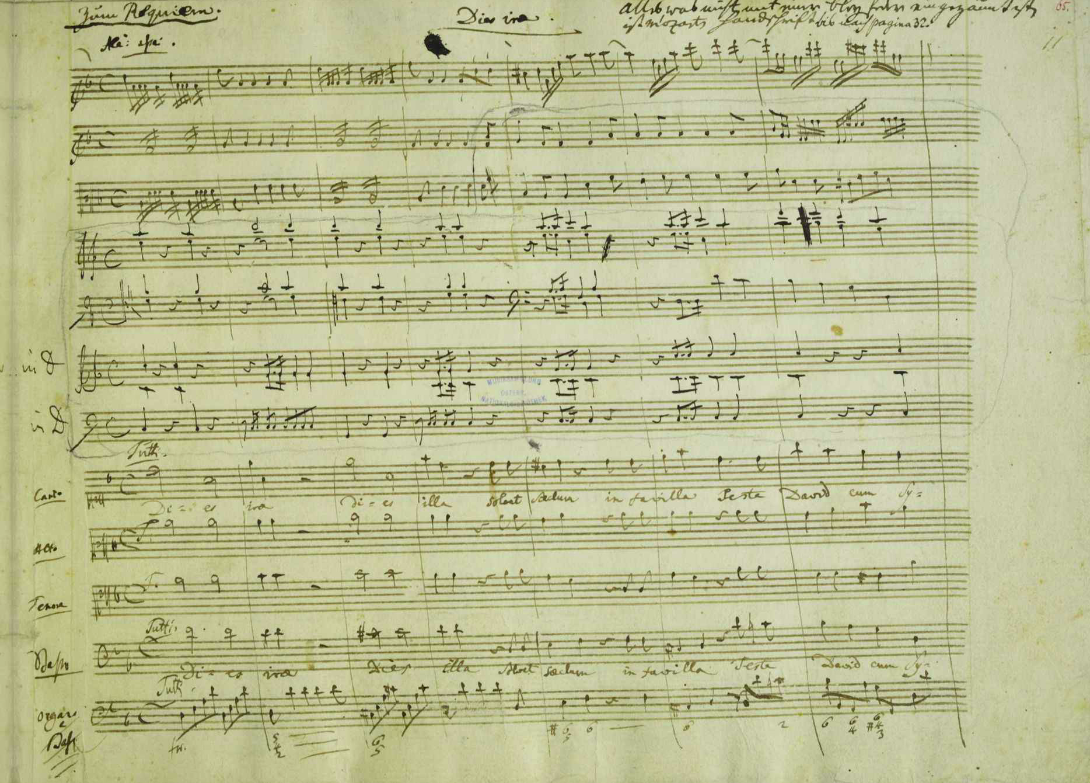 Zum Requiem.
Dies iræ.
Alles was nicht mit einer bley feder eingezäumt ist
ist Mozarts Handschrift bis auf pagina 32.
65.
11
All: assai.
in D
in D
Tutti.
Canto
Di = es iræ Di = es illa solvet sæclum in favilla Teste David cum Sy =
Alto
Tenore
Tutti.
Basso
Di = es iræ Dies illa solvet sæclum in favilla Teste David cum Sy =
Tutti
Organo
e
Bassi